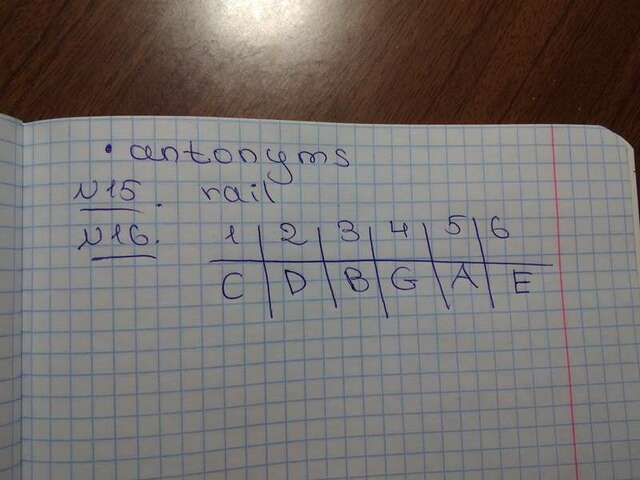 • antonyms
N15. rail
N16. 1 2 3 4 5 6
C D B G A E